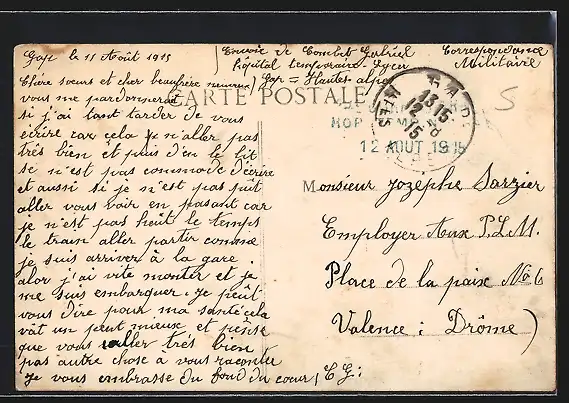 Gap le 11 Août 1915
Envoie de Combet Gabriel
Hôpital temporaire Lycer
Gap = Hautes alpes
Correspondance
Militaire
CARTE POSTALE
5
GAP
13 15
12 -8
15
HOP
12 AOUT 1915
Chère sœurs et cher beaufrère neuveux
vous me pardonnerait
si j'ai tant tarder de vous
écrire car cela je n'aller pas
très bien et puis d'en le lit
se n'est pas commode d'écrire
et aussi si je n'est pas put
aller vous voir en pasant car
je n'est pas heut le temps
le train aller partir comme
je suis arriver à la gare.
alor j'ai vite monter et je
me suis embarquer. Je peut
vous dire pour ma santé cela
vat un peut mieux et pense
que vous aller très bien
pas autre chose à vous racontée
Je vous embrasse du fond du cœur, C G:
Monsieur Jozephe Sarzier
Employer Aux P.L.M.
Place de la paix No 6
Valence : Drôme)